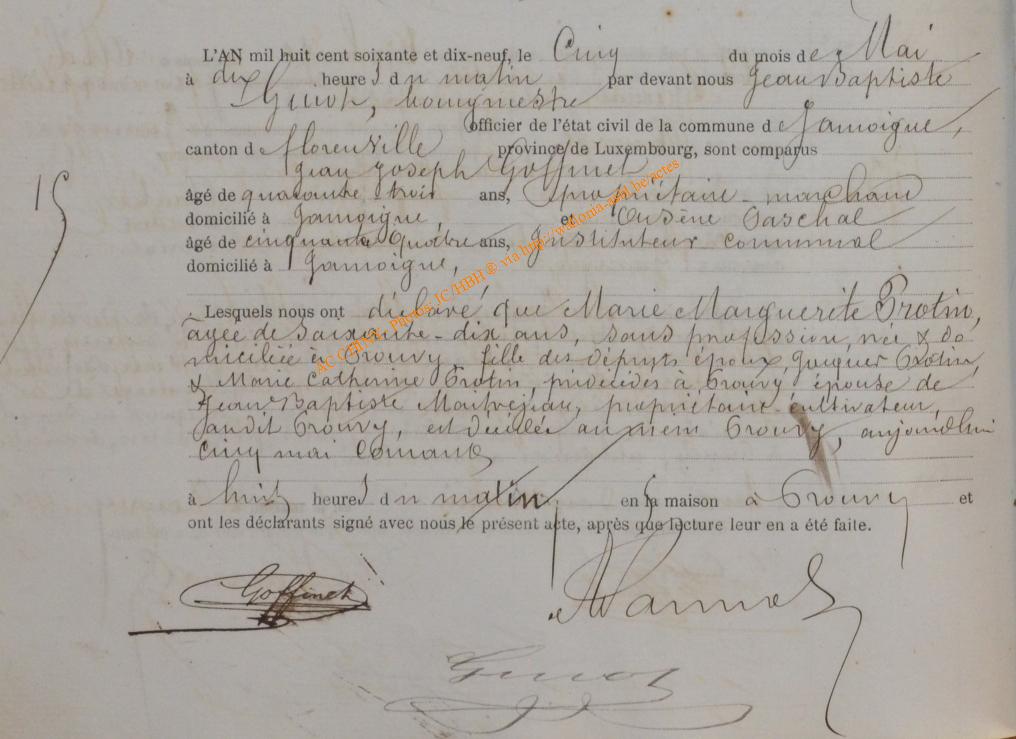 L'AN mil huit cent soixante et dix-neuf, le Cinq du mois de Mai
à dix heures du matin par devant nous Jean Baptiste
Guiot, bourgmestre
officier de l'état civil de la commune de Jamoigne,
canton de Florenville province de Luxembourg, sont comparus
Jean Joseph Goffinet
âgé de quarante trois ans, propriétaire marchand
domicilié à Jamoigne et
âgé de cinquante quatre ans, Instituteur communal
domicilié à Jamoigne,
15
Lesquels nous ont déclaré que Marie Marguerite Protin,
agée de Soixante-dix ans, sans profession, née & do
miciliée à Prouvy, fille des défunts époux, Jacques Protin
& Marie Catherine Protin, prédécédés à Prouvy, épouse de
Jean Baptiste Maitrejean, propriétaire-cultivateur,
audit Prouvy, est décédée au même Prouvy, aujourdhui
Cinq mai Courant
à huit heures du matin en sa maison à Prouvy et
ont les déclarants signé avec nous le présent acte, après que lecture leur en a été faite.
Goffinet
Guiot
Photos: JC/HBH ® via http://wallonia-asbl.be/actes